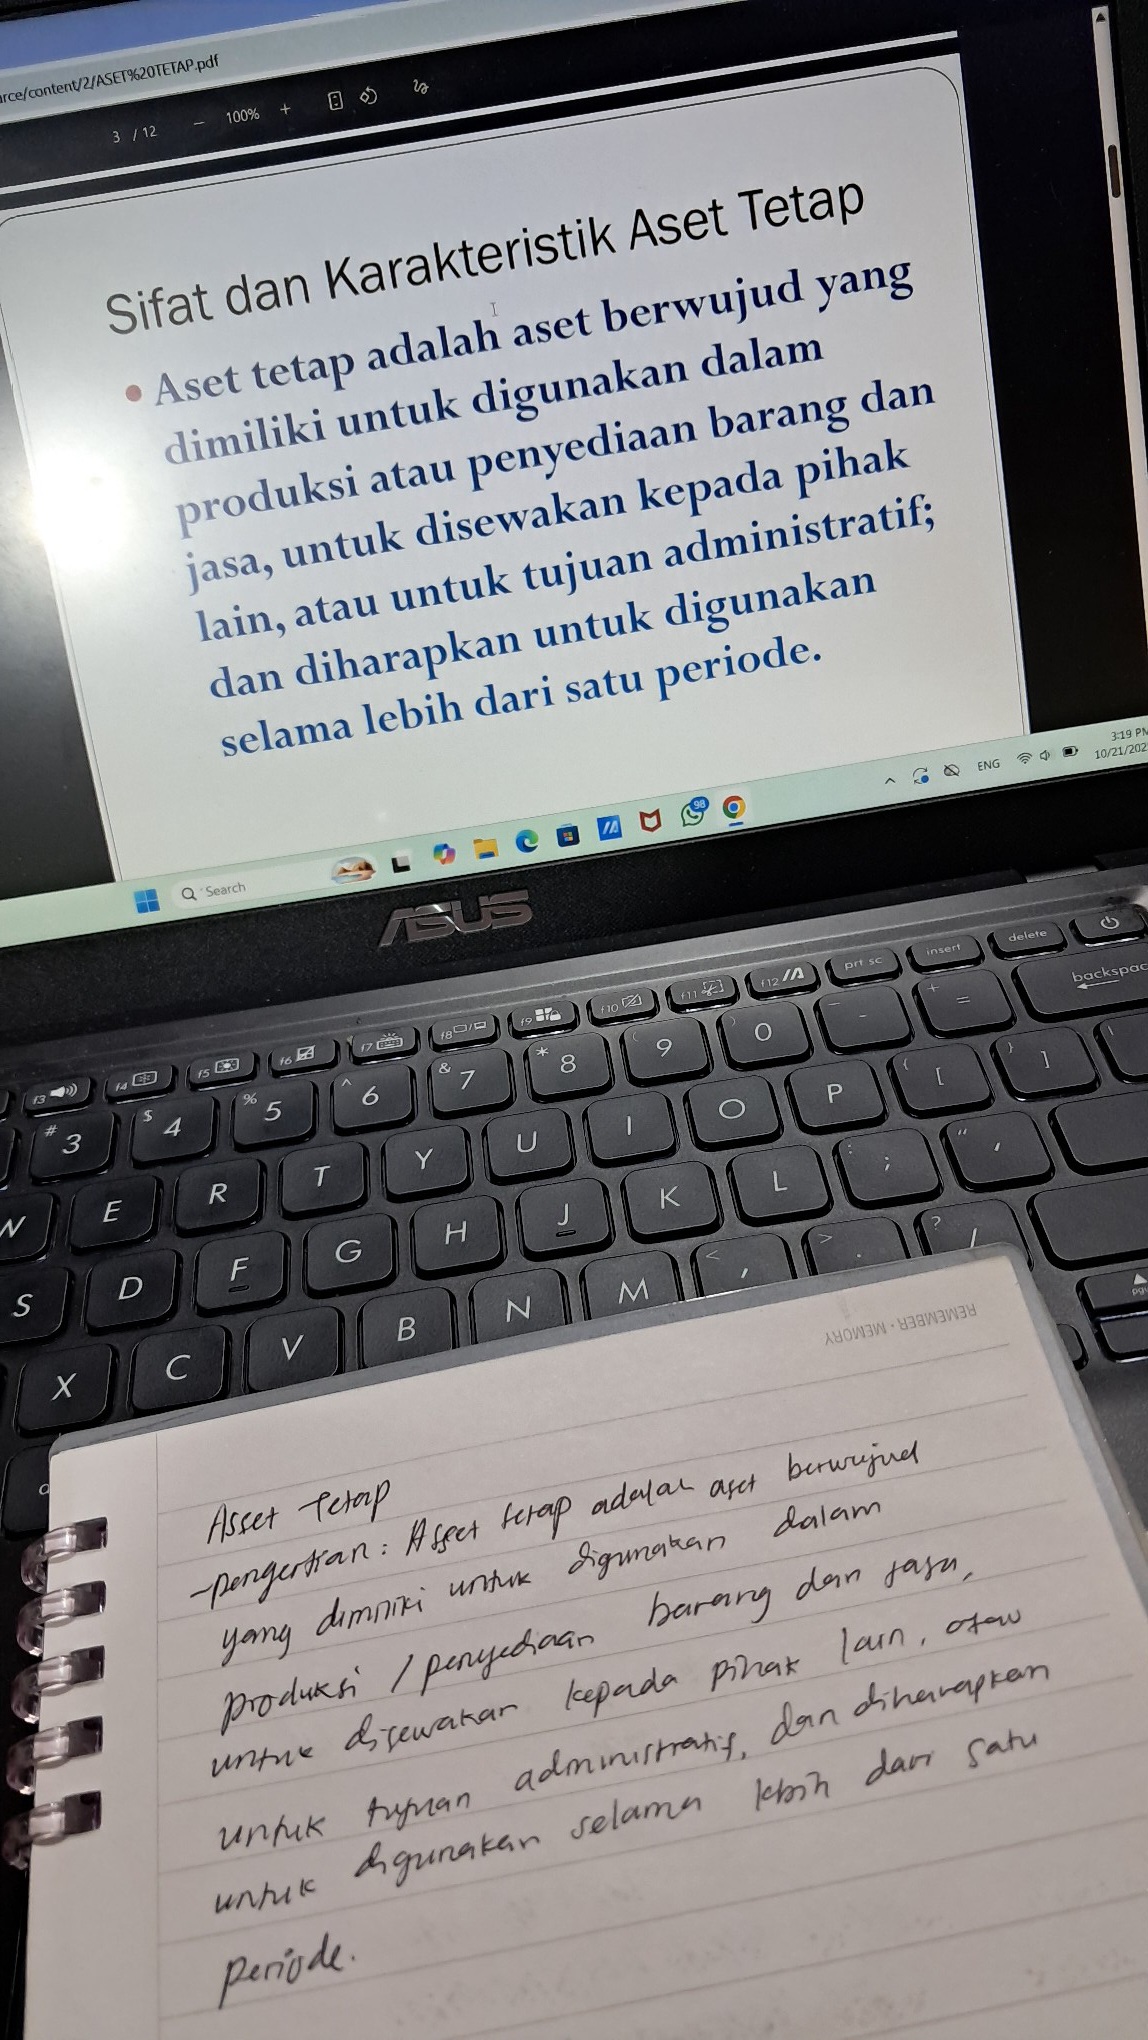 rce/content/2/ASET%20TETAP.pdf
3 / 12
100%
Sifat dan Karakteristik Aset Tetap
• Aset tetap adalah aset berwujud yang
dimiliki untuk digunakan dalam
produksi atau penyediaan barang dan
jasa, untuk disewakan kepada pihak
lain, atau untuk tujuan administratif;
dan diharapkan untuk digunakan
selama lebih dari satu periode.
Search
98
ENG
3:19 PM
10/21/202
ASUS
f3 f4 f5 f6 f7 f8 f9 f10 f11 f12 prt sc insert delete
# 3 $ 4 % 5 ^ 6 & 7 * 8 ( 9 ) 0 _ - + = backspac
W E R T Y U I O P { [ } ]
S D F G H J K L : ; " '
X C V B N M < , > . ? /
REMEMBER · MEMORY
Asset Tetap
- pengertian : Asset tetap adalah aset berwujud
yang dimiliki untuk digunakan dalam
produksi / penyediaan barang dan jasa,
untuk disewakan kepada pihak lain, atau
untuk tujuan administratif, dan diharapkan
untuk digunakan selama lebih dari satu
periode.